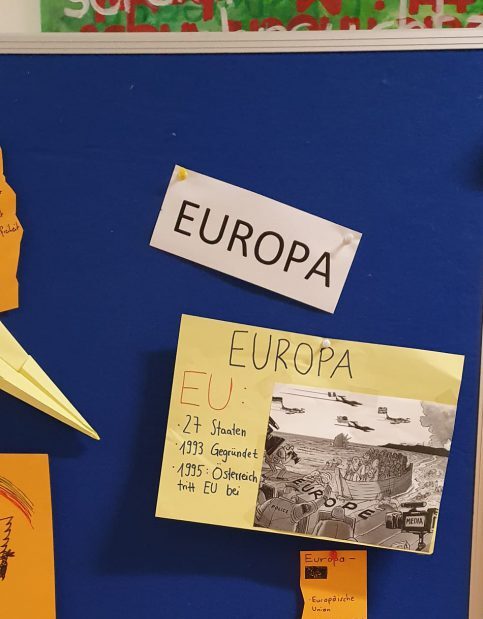 EUROPA
EUROPA
EU:
· 27 Staaten
· 1993 Gegründet
· 1995: Österreich
tritt EU bei
EUROPE
POLICE
MEDIA
Europa -
· Europäische
Union